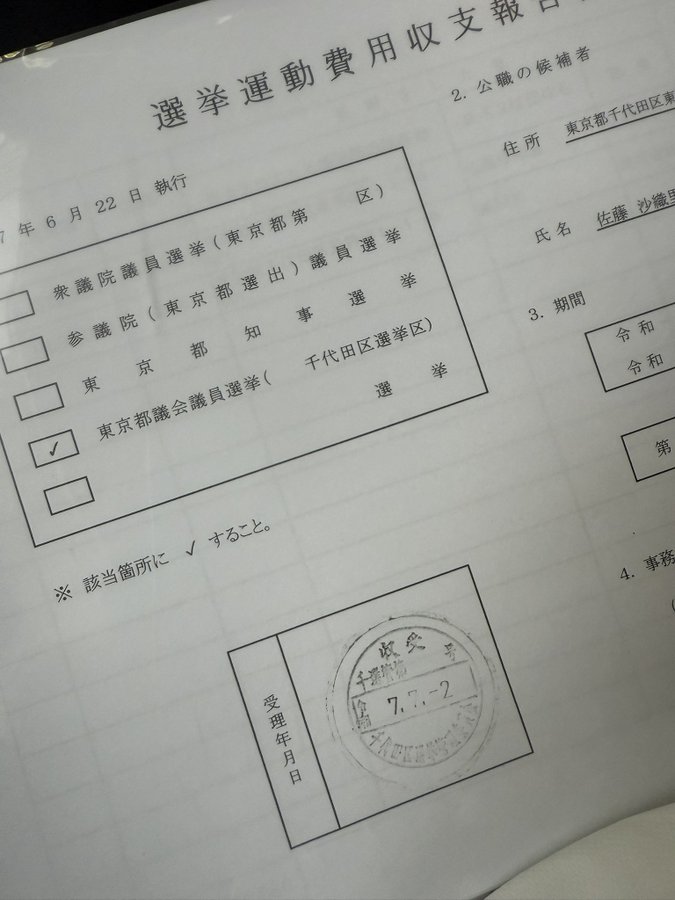 選挙運動費用収支報告
7年6月22日 執行
衆議院議員選挙(東京都第 区)
参議院(東京都選出)議員選挙
東京都知事選挙
✓ 東京都議会議員選挙( 千代田区選挙区)
選挙
※ 該当箇所に ✓ すること。
受理年月日
収受
号
7.7.-2
2. 公職の候補者
住所 東京都千代田区東
氏名 佐藤 沙織里
3. 期間
令和
令和
第
4. 事務